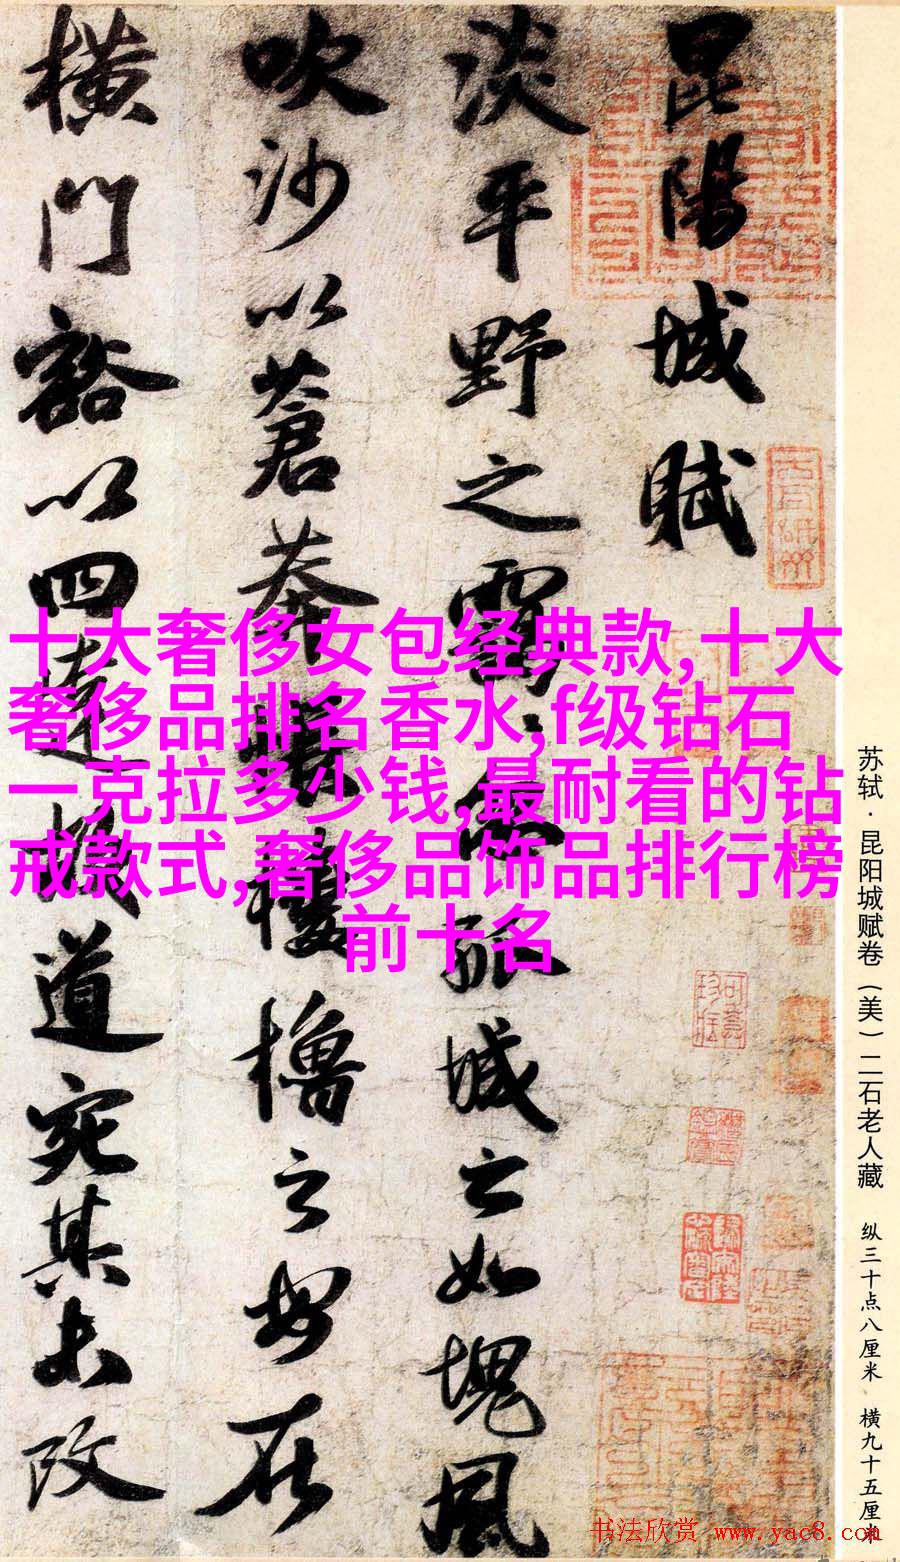 昆陽城賦
淡平野之靄〻忽孤城之如塊風
吹沙以蒼莽悵樓櫓之安在
橫門豁以四達故道宛其未改
十大奢侈女包经典款,十大
奢侈品排名香水,f级钻石
一克拉多少钱,最耐看的钻
戒款式,奢侈品饰品排行榜
前十名
苏轼·昆阳城赋卷（美）二石老人藏 纵三十点八厘米 横九十五厘米
书法欣赏 www.yac8.com